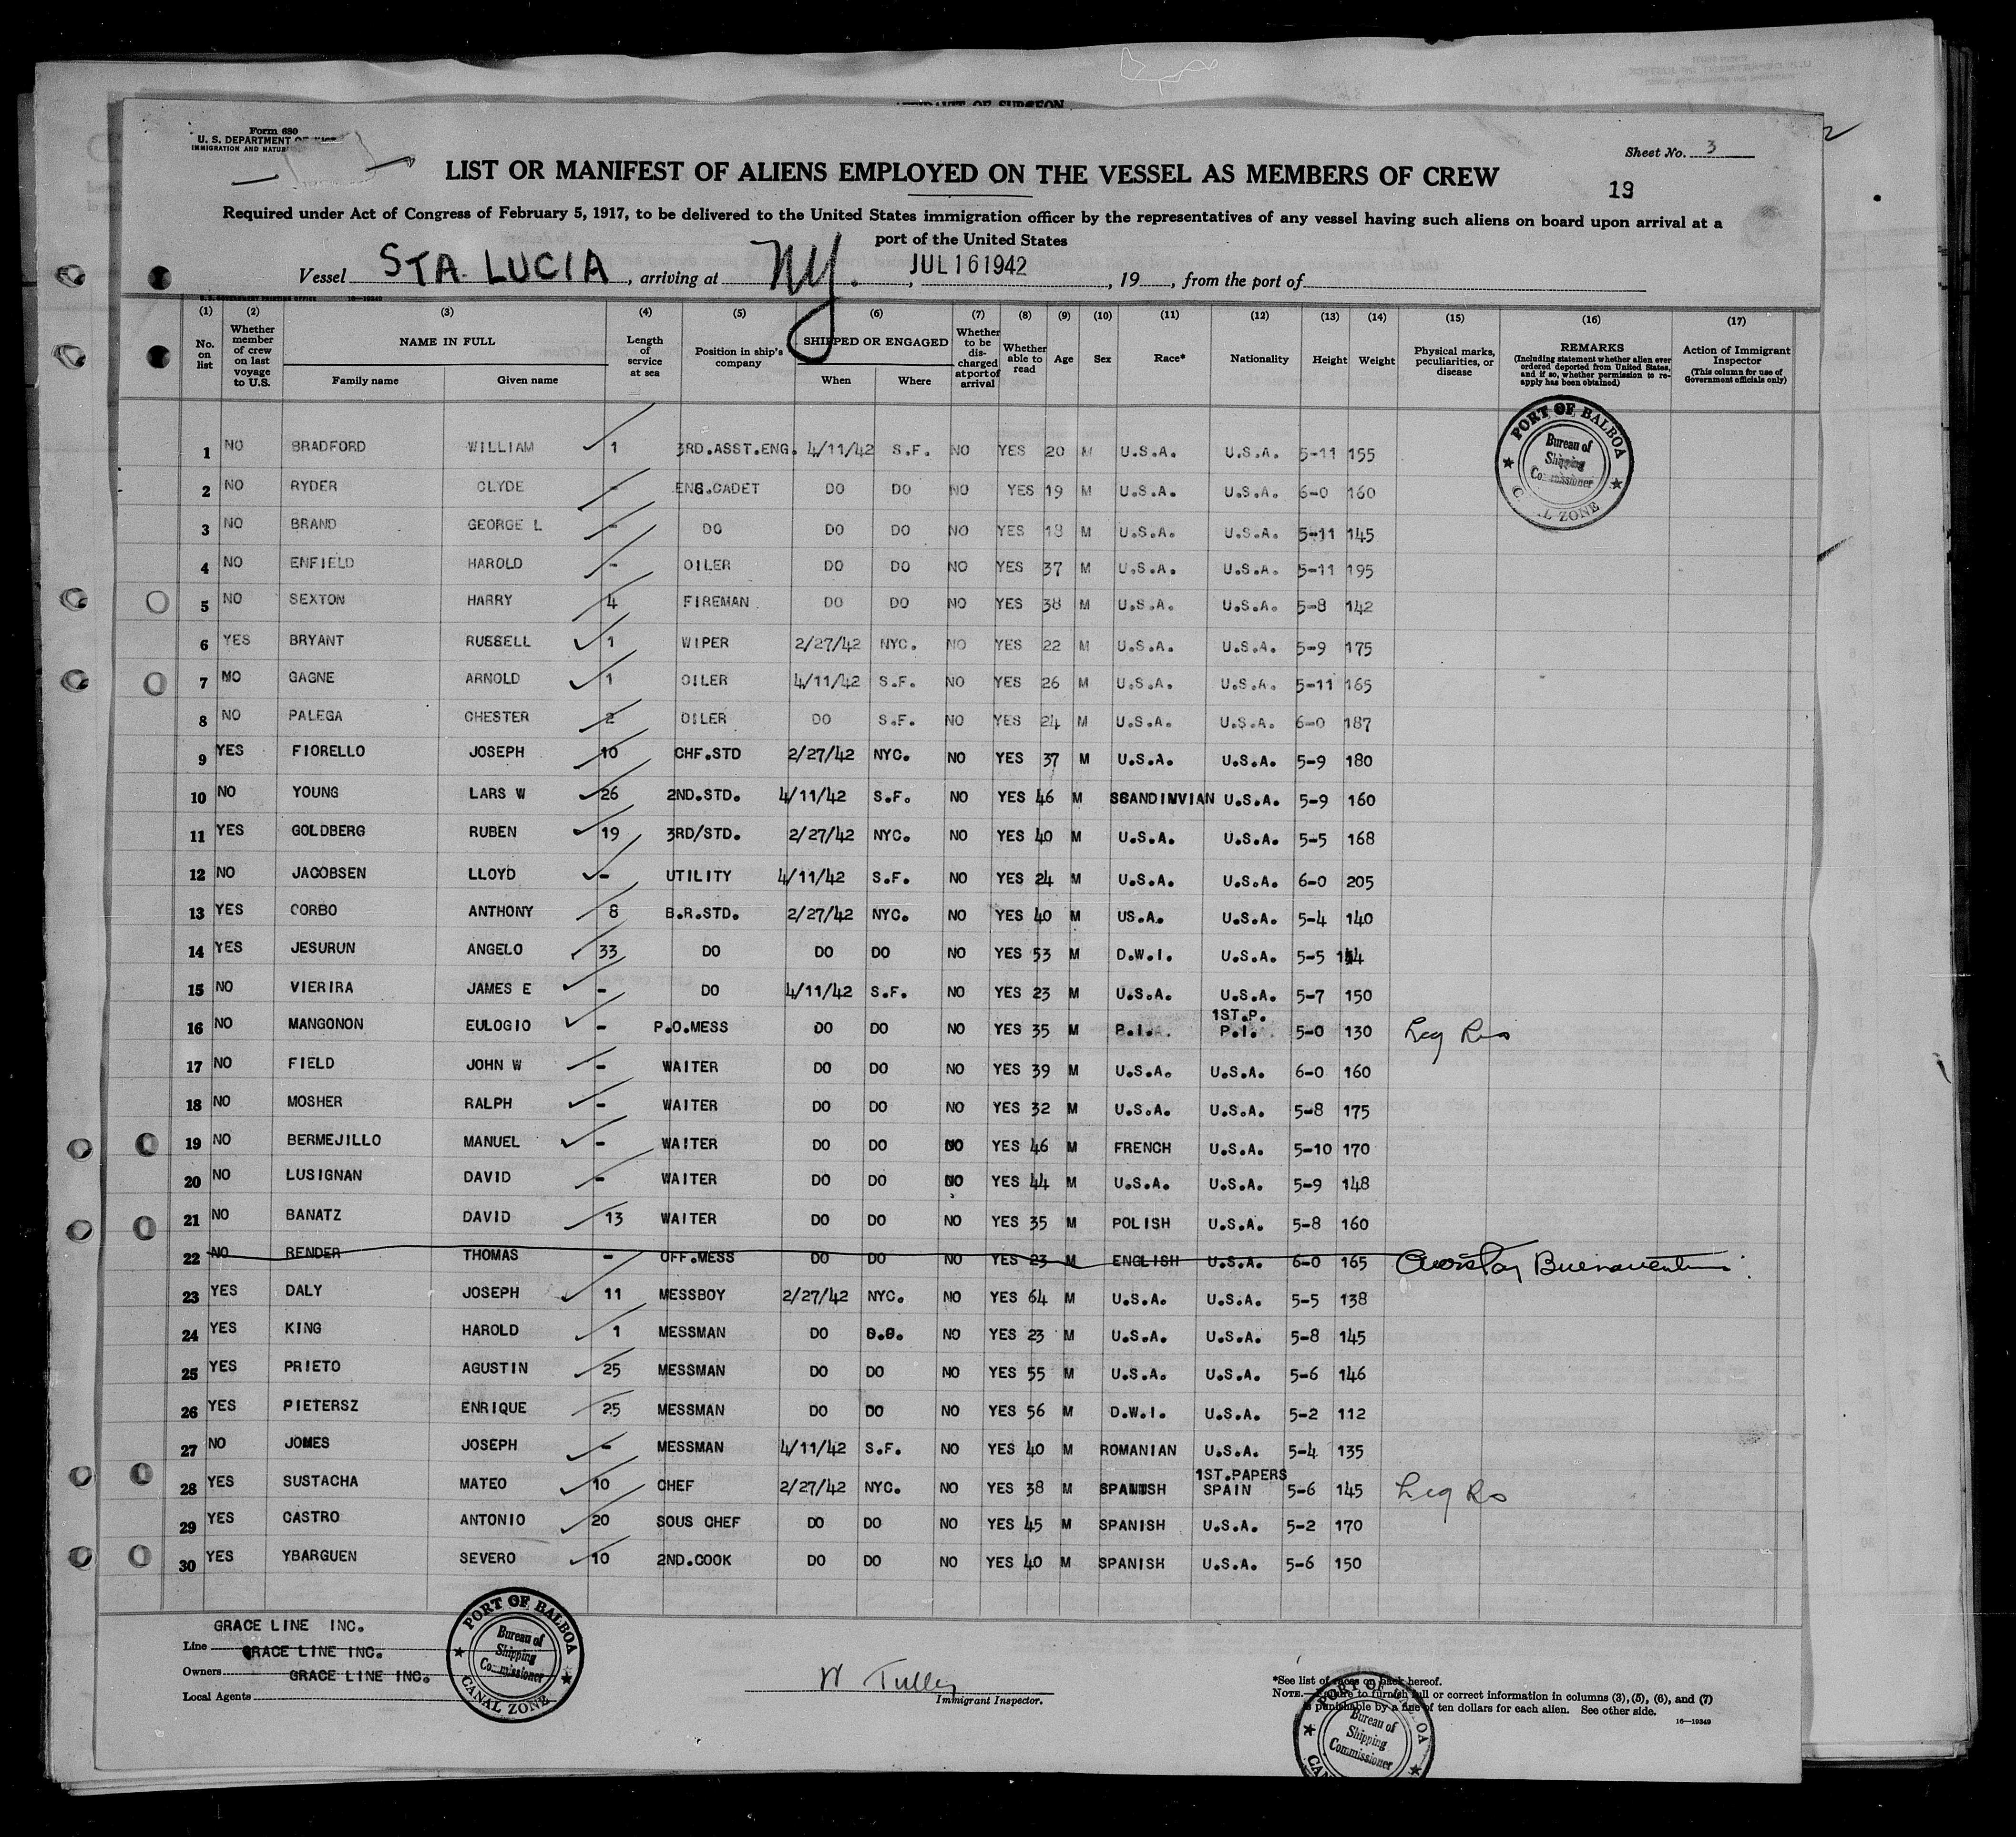 Form 680
U. S. DEPARTMENT OF
IMMIGRATION AND NATUR
Sheet No. 3
LIST OR MANIFEST OF ALIENS EMPLOYED ON THE VESSEL AS MEMBERS OF CREW
19
Required under Act of Congress of February 5, 1917, to be delivered to the United States immigration officer by the representatives of any vessel having such aliens on board upon arrival at a
port of the United States
Vessel STA. LUCIA, arriving at NY., JUL 16 1942, 19, from the port of
U. S. GOVERNMENT PRINTING OFFICE 16—19349
(1) (2) (3) (4) (5) (6) (7) (8) (9) (10) (11) (12) (13) (14) (15) (16) (17)
No. on list
Whether member of crew on last voyage to U.S.
NAME IN FULL
Family name
Given name
Length of service at sea
Position in ship's company
SHIPPED OR ENGAGED
When
Where
Whether to be dis-charged at port of arrival
Whether able to read
Age
Sex
Race*
Nationality
Height
Weight
Physical marks, peculiarities, or disease
REMARKS
(Including statement whether alien ever ordered deported from United States, and if so, whether permission to re-apply has been obtained)
Action of Immigrant Inspector
(This column for use of Government officials only)
PORT OF BALBOA
Bureau of
Shipping
Commissioner
ZONE
1 NO BRADFORD WILLIAM 1 3RD.ASST.ENG. 4/11/42 S.F. NO YES 20 M U.S.A. U.S.A. 5-11 155
2 NO RYDER CLYDE - ENG.CADET DO DO NO YES 19 M U.S.A. U.S.A. 6-0 160
3 NO BRAND GEORGE L - DO DO DO NO YES 18 M U.S.A. U.S.A. 5-11 145
4 NO ENFIELD HAROLD - OILER DO DO NO YES 37 M U.S.A. U.S.A. 5-11 195
5 NO SEXTON HARRY 4 FIREMAN DO DO NO YES 38 M U.S.A. U.S.A. 5-8 142
6 YES BRYANT RUSSELL 1 WIPER 2/27/42 NYC. NO YES 22 M U.S.A. U.S.A. 5-9 175
7 NO GAGNE ARNOLD 1 OILER 4/11/42 S.F. NO YES 26 M U.S.A. U.S.A. 5-11 165
8 NO PALEGA CHESTER 2 OILER DO S.F. NO YES 24 M U.S.A. U.S.A. 6-0 187
9 YES FIORELLO JOSEPH 10 CHF.STD 2/27/42 NYC. NO YES 37 M U.S.A. U.S.A. 5-9 180
10 NO YOUNG LARS W 26 2ND.STD. 4/11/42 S.F. NO YES 46 M SCANDINVIAN U.S.A. 5-9 160
11 YES GOLDBERG RUBEN 19 3RD/STD. 2/27/42 NYC. NO YES 40 M U.S.A. U.S.A. 5-5 168
12 NO JACOBSEN LLOYD - UTILITY 4/11/42 S.F. NO YES 24 M U.S.A. U.S.A. 6-0 205
13 YES CORBO ANTHONY 8 B.R.STD. 2/27/42 NYC. NO YES 40 M US.A. U.S.A. 5-4 140
14 YES JESURUN ANGELO 33 DO DO DO NO YES 53 M D.W.I. U.S.A. 5-5 144
15 NO VIERIRA JAMES E - DO 4/11/42 S.F. NO YES 23 M U.S.A. U.S.A. 5-7 150
1ST.P.
16 NO MANGONON EULOGIO - P.O.MESS DO DO NO YES 35 M P.I. P.I. 5-0 130 Leg Res
17 NO FIELD JOHN W - WAITER DO DO NO YES 39 M U.S.A. U.S.A. 6-0 160
18 NO MOSHER RALPH - WAITER DO DO NO YES 32 M U.S.A. U.S.A. 5-8 175
19 NO BERMEJILLO MANUEL - WAITER DO DO NO YES 46 M FRENCH U.S.A. 5-10 170
20 NO LUSIGNAN DAVID - WAITER DO DO NO YES 44 M U.S.A. U.S.A. 5-9 148
21 NO BANATZ DAVID 13 WAITER DO DO NO YES 35 M POLISH U.S.A. 5-8 160
22 NO RENDER THOMAS - OFF.MESS DO DO NO YES 23 M ENGLISH U.S.A. 6-0 165 Buenaventura
23 YES DALY JOSEPH 11 MESSBOY 2/27/42 NYC. NO YES 64 M U.S.A. U.S.A. 5-5 138
24 YES KING HAROLD 1 MESSMAN DO NO YES 23 M U.S.A. U.S.A. 5-8 145
25 YES PRIETO AGUSTIN 25 MESSMAN DO DO NO YES 55 M U.S.A. U.S.A. 5-6 146
26 YES PIETERSZ ENRIQUE 25 MESSMAN DO DO NO YES 56 M D.W.I. U.S.A. 5-2 112
27 NO JOMES JOSEPH - MESSMAN 4/11/42 S.F. NO YES 40 M ROMANIAN U.S.A. 5-4 135
1ST.PAPERS
28 YES SUSTACHA MATEO 10 CHEF 2/27/42 NYC. NO YES 38 M SPANISH SPAIN 5-6 145 Leg Res
29 YES CASTRO ANTONIO 20 SOUS CHEF DO DO NO YES 45 M SPANISH U.S.A. 5-2 170
30 YES YBARGUEN SEVERO 10 2ND.COOK DO DO NO YES 40 M SPANISH U.S.A. 5-6 150
GRACE LINE INC.
Line GRACE LINE INC.
Owners GRACE LINE INC.
Local Agents
PORT OF BALBOA
Bureau of
Shipping
Commissioner
CANAL ZONE
W Tulley
Immigrant Inspector.
*See list of races on back hereof.
NOTE.—Failure to furnish full or correct information in columns (3), (5), (6), and (7)
is punishable by a fine of ten dollars for each alien. See other side.
16—19349
Bureau of
Shipping
Commissioner